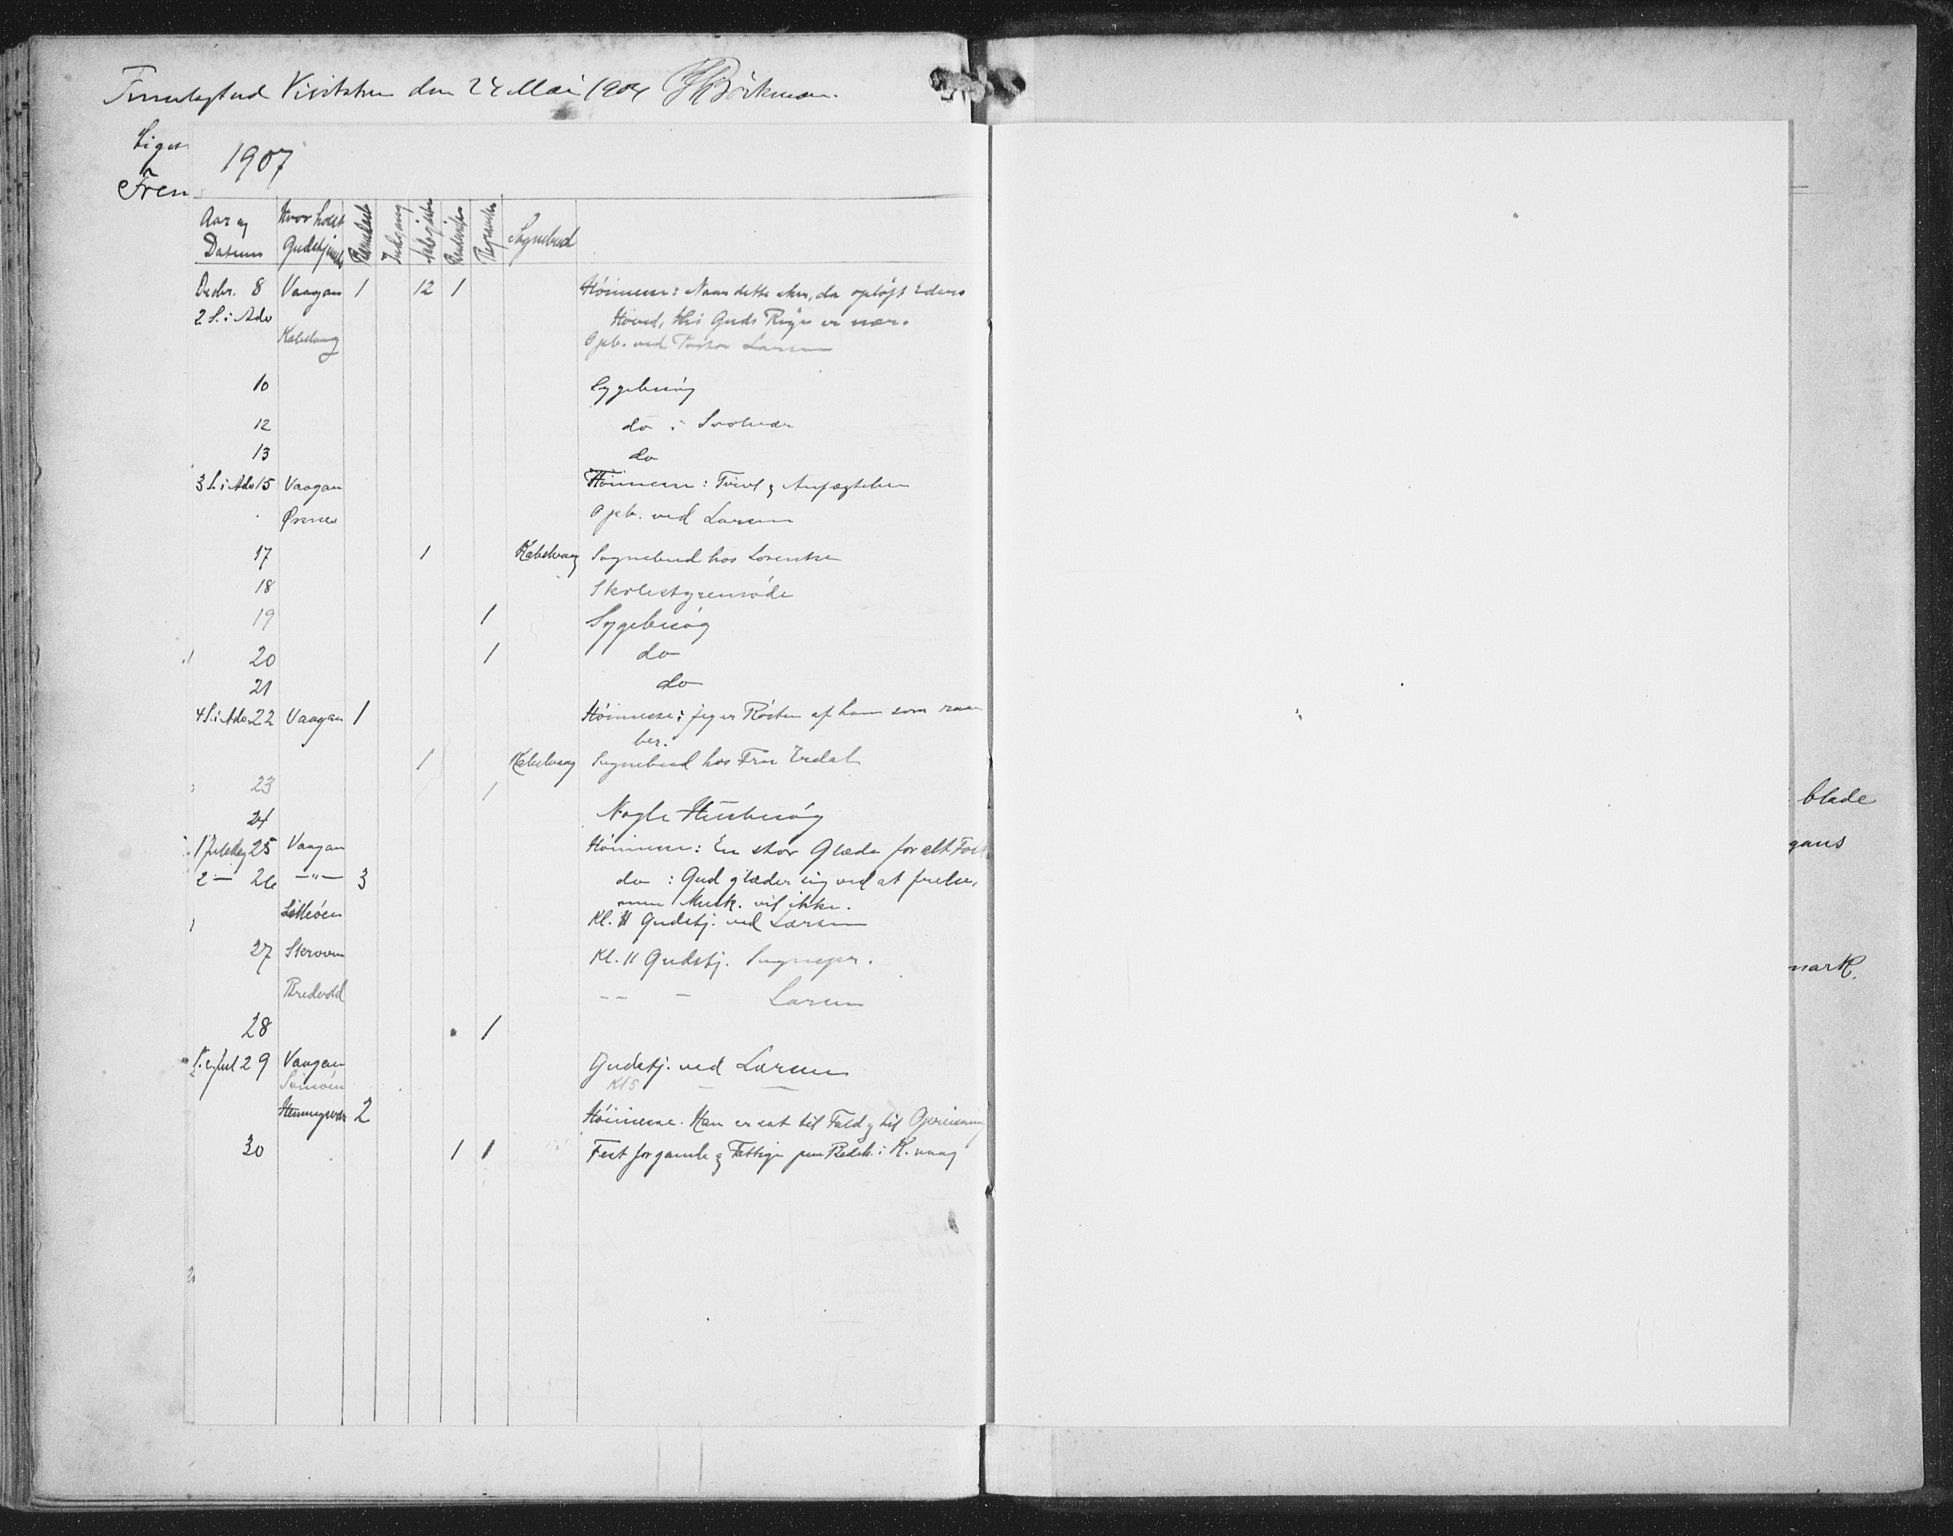 Fremlagt ved Visitatsen den 24 Mai 1904 Böckman.
Liges
Frem
1907
Aar og Datum Hvor holdt Gudstjeneste Indgang Sognebud
Decbr. 8 Vaagan 1 12 1 Höimesse: Naar dette sker, da opløft Eders
2 S. i Adv Hoved, thi Guds Rige er nær.
Kabelvaag Opb. ved Pastor Larsen
10 Sygebesøg
12 do i Svolvær
13 do
3 S. i Adv 15 Vaagan Höimesse: Tvivl og Anfægtelser
Ørsnes Opb. ved Larsen
17 1 Kabelvaag Sognebud hos Lorentsen
18 Skolestyremöde
19 1 Sygebesög
20 1 do
21 do
4 S. i Adv 22 Vaagan 1 Höimesse: Jeg er Røsten af ham som raa-
ber.
1 Kabelvaag Sognebud hos Fru Erdal
23 1
24 Nogle Husbesög
1 Juledag 25 Vaagan Höimesse: En stor Glæde for alt Folk
2 — 26 —"— 3 do : Gud glæder sig ved at frelse,
men Mssk. vil ikke.
Kl. 11 Gudstj. ved Larsen
27 Skroven Kl. 11 Gudstj. Sognepr.
Bredvold -- - Larsen
28 1
S. e. Jul 29 Vaagan Gudstj. ved Larsen
Svinöen Kl 5 — —
Henningsvær 2 Höimesse. Han er sat til Fald og til Opreisning
30 1 1 Fest for gamle og Fattige paa Bedeh. i K.vaag
blade
gans
mark.